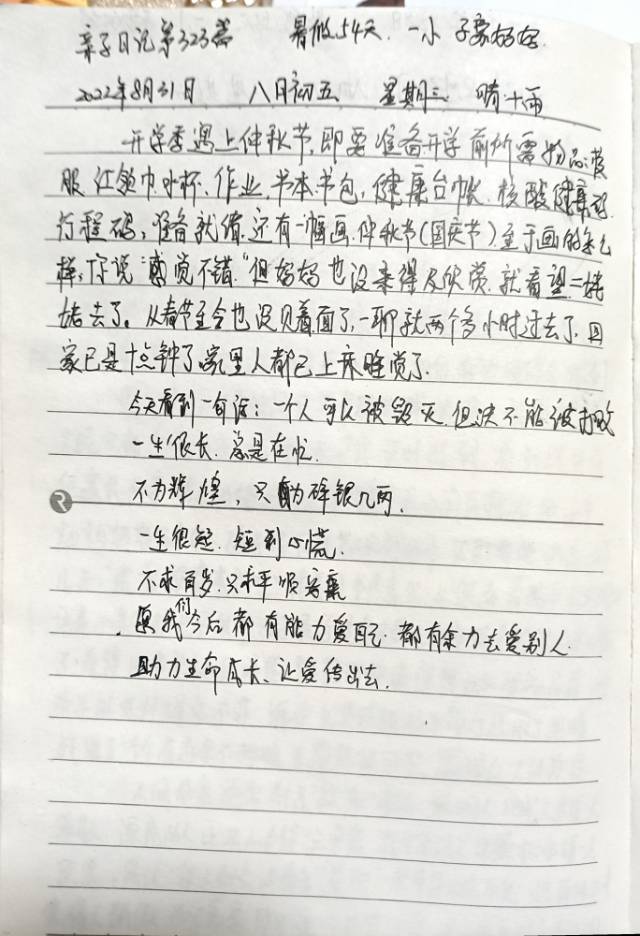 亲子日记第323篇 暑假54天. 一小
2022年8月31日 八月初五 星期三 晴十雨
开学季遇上仲秋节,即要准备开学前所需物品:校
服.红领巾.水杯.作业.书本.书包,健康台帐.核酸健康码
行程码,准备就绪.还有一幅画.仲秋节(国庆节)至于画的怎么
样,你说"感觉不错."但妈妈也没来得及欣赏.就看望二姥
姥去了。从春节至今也没见着面了,一聊就两个多小时过去了.回
家已是十点钟了家里人都已上床睡觉了.
今天看到一句话:一个人可以被毁灭.但决不能被打败
一生很长.总是在忙.
不为辉煌,只为碎银几两.
一生很短.短到心慌.
不求百岁.只求平顺安康
愿我们今后都有能力爱自己.都有余力去爱别人.
助力生命成长、让爱传出去.
2